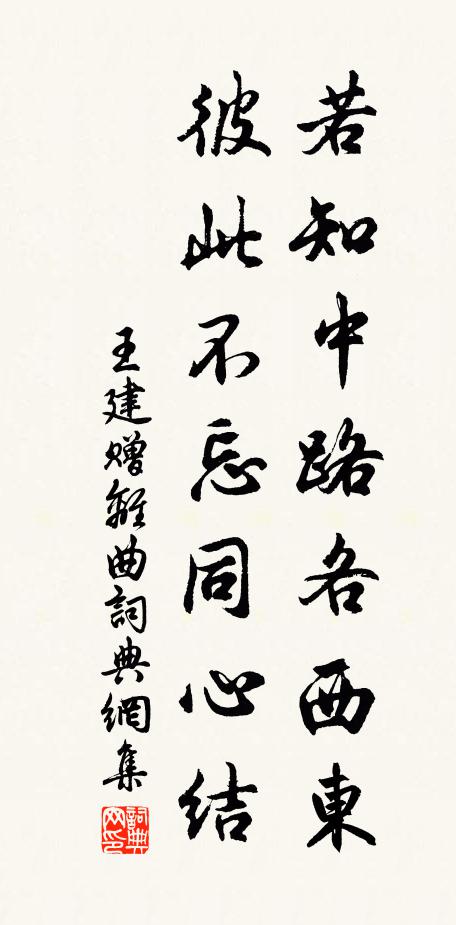 若知中路各西東
彼此不忘同心結
王建贈離曲詞典網集
詞典网印